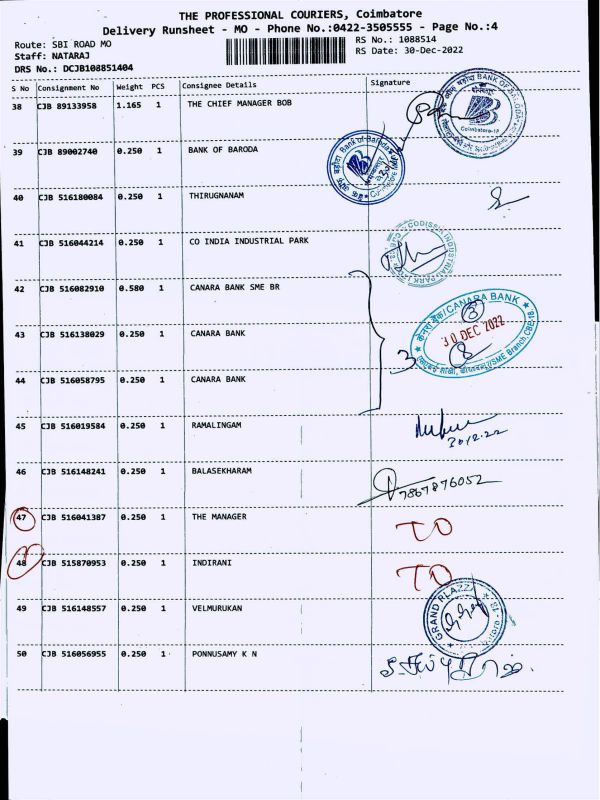 THE PROFESSIONAL COURIERS, Coimbatore
Delivery Runsheet - MO - Phone No.:0422-3505555 - Page No.:4
Route: SBI ROAD MO
RS No.: 1088514
Staff: NATARAJ
RS Date: 30-Dec-2022
DRS No.: DCJB108851404
S No Consignment No Weight PCS Consignee Details Signature
38 CJB 89133958 1.165 1 THE CHIEF MANAGER BOB
BANK OF BARODA
Coimbatore-18
39 CJB 89002740 0.250 1 BANK OF BARODA
Bank of Baroda
40 CJB 516180084 0.250 1 THIRUGNANAM
41 CJB 516044214 0.250 1 CO INDIA INDUSTRIAL PARK
CODISSIA INDUSTRIAL PARK
42 CJB 516082910 0.580 1 CANARA BANK SME BR
केनरा बैंक/CANARA BANK
3
30 DEC 2022
8
SME Branch, CBE-18
3
43 CJB 516138029 0.250 1 CANARA BANK
44 CJB 516058795 0.250 1 CANARA BANK
45 CJB 516019584 0.250 1 RAMALINGAM
30.12.22
46 CJB 516148241 0.250 1 BALASEKHARAM
7867876052
47 CJB 516041387 0.250 1 THE MANAGER TO
48 CJB 515870953 0.250 1 INDIRANI TO
49 CJB 516148557 0.250 1 VELMURUKAN
GRAND PLAZZA
50 CJB 516056955 0.250 1 PONNUSAMY K N